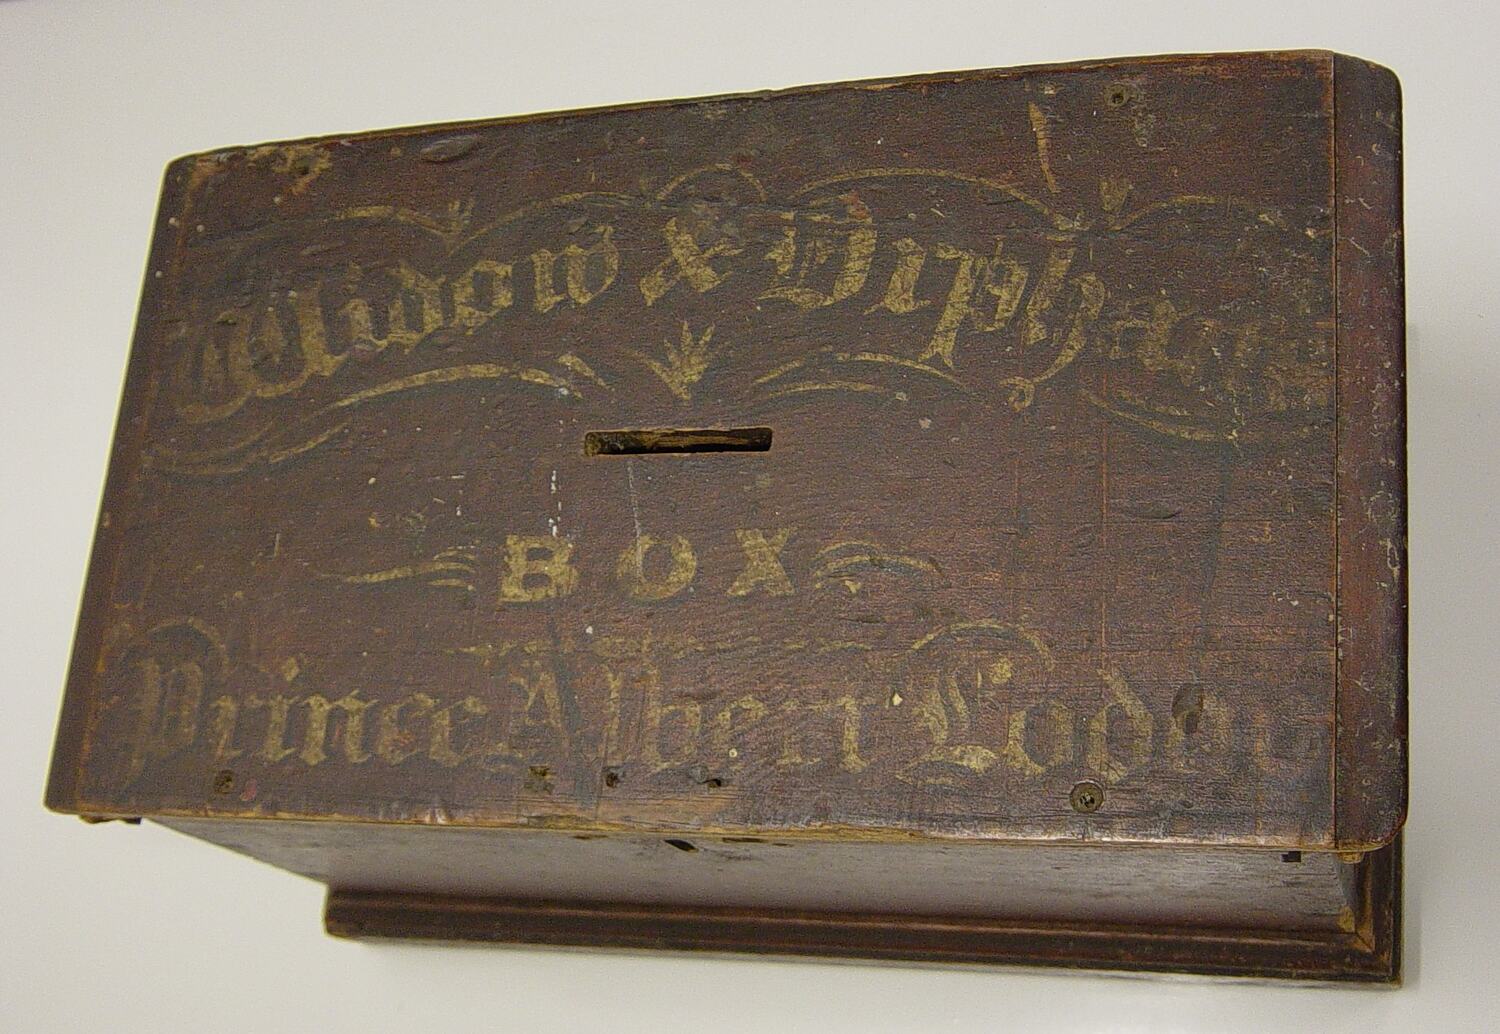 Widow & Orphans
BOX
Prince Albert Lodge